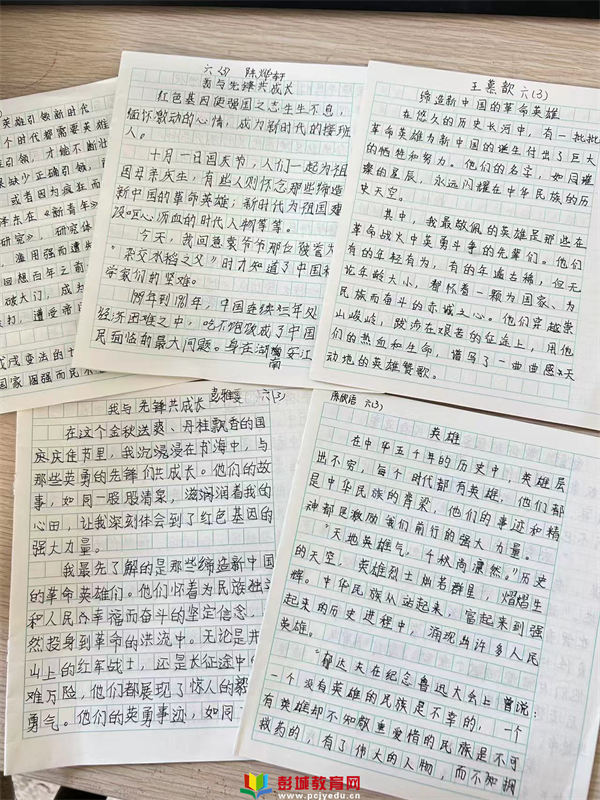 英雄引领新时代
个时代都需要英雄
引领,才能不断壮
缺少正确引领,
或者因为疯狂而
泽东在《新青年》
研究》,研究体
滥用强而遭失
回想百年之前
破大门,成为
打,遭受帝
戊戌变法的
国家困强而民
六(3) 陈烨轩
我与先锋共成长
红色基因使强国之志生生不息,
缅怀激动的心情,成为新时代的接班
人。
十月一日国庆节,人们一起为祖
国母亲庆生,有些人则怀念那些缔造
新中国的革命英雄;新时代为祖国建
设呕心沥血的时代人物等等。
今天,我回忆袁爷爷那台被誉为
"杂交水稻之父"时才知道了中国科
学家们的坚难。
1959年到1961年,中国连续三年处
经济困难之中,吃不饱饭成了中国
民面临的最大问题。身在湖南安江
南
王慕歆 六(3)
缔造新中国的革命英雄
在悠久的历史长河中,有一批批
革命英雄为新中国的诞生付出了巨大
的牺牲和努力。他们的名字,如同璀
璨的星辰,永远闪耀在中华民族的历
史天空。
其中,我最敬佩的英雄是那些在
革命战火中英勇斗争的先辈们。他们
有的年轻有为,有的年逾古稀,但无
论年龄大小,都怀着一颗为国家、为
民族而奋斗的赤诚之心。他们穿越崇
山峻岭,跋涉在艰苦的征途上,用他
们的热血和生命,谱写了一曲曲感天
动地的英雄赞歌。
彭雅雯 六(3)
我与先锋共成长
在这个金秋送爽、丹桂飘香的国
庆佳节里,我沉浸在书海中,与
那些英勇的先锋们共成长。他们的故
事,如同一股股清泉,滋润着我的
心田,让我深刻体会到了红色基因的
强大力量。
我最先了解的是那些缔造新中国
的革命英雄们。他们怀着为民族独立
和人民幸福而奋斗的坚定信念,
然投身到革命的洪流中。无论是井
山上的红军战士,还是长征途中
难万险,他们都展现了惊人的毅
勇气。他们的英勇事迹,如同
陈欣语 六(3)
英雄
在中华五千年的历史中,英雄层
出不穷,每个时代都有英雄,他们都
是中华民族的脊梁,他们的事迹和精
神都是激励我们前行的强大力量。
"天地英雄气,千秋尚凛然。"历史
的天空,英雄烈士灿若群星,熠熠生
辉。中华民族从站起来,富起来到强
起来的历史进程中,涌现出许多人民
英雄。
"郁达夫在纪念鲁迅大会上曾说:
一个没有英雄的民族是不幸的,一个
有英雄却不知敬重爱惜的民族是不可
救药的,有了伟大的人物,而不知拥
彭城教育网
www.pcjyedu.cn